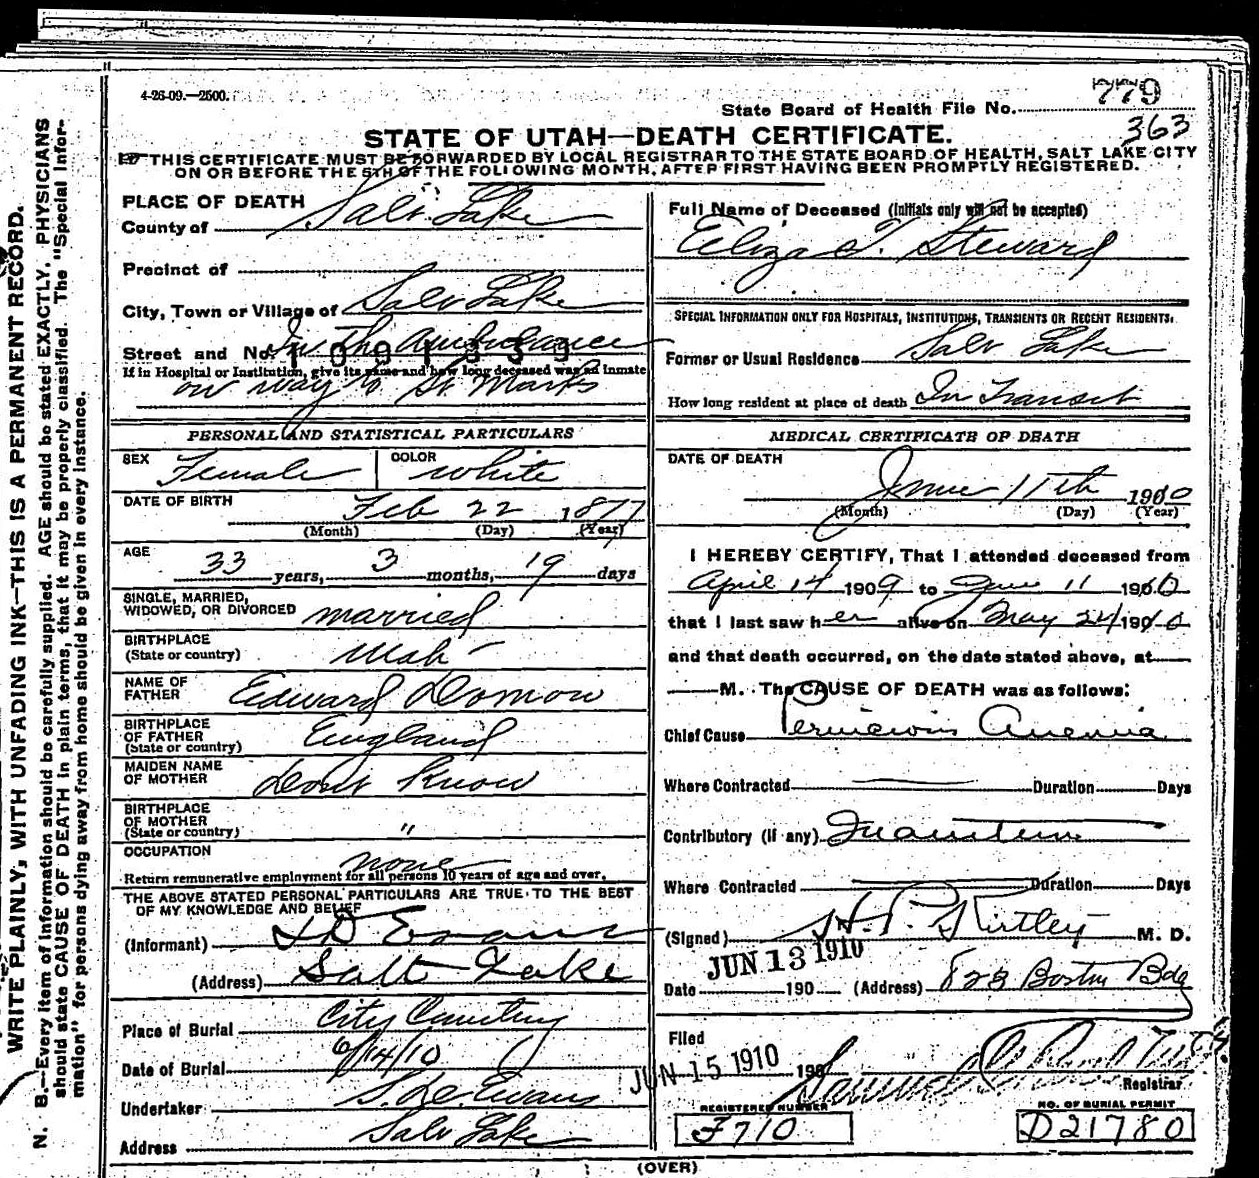 4-26-09.—2500.
State Board of Health File No. 779
363
STATE OF UTAH—DEATH CERTIFICATE.
THIS CERTIFICATE MUST BE FORWARDED BY LOCAL REGISTRAR TO THE STATE BOARD OF HEALTH, SALT LAKE CITY
ON OR BEFORE THE 5TH OF THE FOLLOWING MONTH, AFTER FIRST HAVING BEEN PROMPTLY REGISTERED.
PLACE OF DEATH
County of Salt Lake
Precinct of
City, Town or Village of Salt Lake
Street and No. In The Ambulance
1091339
If in Hospital or Institution, give its name and how long deceased was an inmate
on way to St Marks
Full Name of Deceased (Initials only will not be accepted)
Eliza T. Steward
SPECIAL INFORMATION ONLY FOR HOSPITALS, INSTITUTIONS, TRANSIENTS OR RECENT RESIDENTS.
Former or Usual Residence Salt Lake
How long resident at place of death In Transit
PERSONAL AND STATISTICAL PARTICULARS
SEX Female COLOR white
DATE OF BIRTH Feb 22 1877
(Month) (Day) (Year)
AGE
33 years, 3 months, 19 days
SINGLE, MARRIED,
WIDOWED, OR DIVORCED married
BIRTHPLACE
(State or country) Utah
NAME OF
FATHER Edward
BIRTHPLACE
OF FATHER England
(State or country)
MAIDEN NAME
OF MOTHER Dont Know
BIRTHPLACE
OF MOTHER
(State or country) "
OCCUPATION none
Return remunerative employment for all persons 10 years of age and over.
THE ABOVE STATED PERSONAL PARTICULARS ARE TRUE TO THE BEST
OF MY KNOWLEDGE AND BELIEF
(Informant) Evans
(Address) Salt Lake
Place of Burial City Cemetery
Date of Burial 6/14/10
Undertaker S. D. Evans
Address Salt Lake
MEDICAL CERTIFICATE OF DEATH
DATE OF DEATH
June 11th 1910
(Month) (Day) (Year)
I HEREBY CERTIFY, That I attended deceased from
April 14 1909 to June 11 1910
that I last saw her alive on May 24 1910
and that death occurred, on the date stated above, at
M. The CAUSE OF DEATH was as follows:
Chief Cause Pernicious Anemia
Where Contracted Duration Days
Contributory (if any) Inanition
Where Contracted Duration Days
(Signed) H. P. Kirtley M. D.
JUN 13 1910
Date 190 (Address) 823 Boston Bdg
Filed
JUN 15 1910 190
Registrar
REGISTERED NUMBER
F710
NO. OF BURIAL PERMIT
D21780
(OVER)
WRITE PLAINLY, WITH UNFADING INK—THIS IS A PERMANENT RECORD.
N. B.—Every item of information should be carefully supplied. AGE should be stated EXACTLY. PHYSICIANS
should state CAUSE OF DEATH in plain terms, that it may be properly classified. The "Special Infor-
mation" for persons dying away from home should be given in every instance.